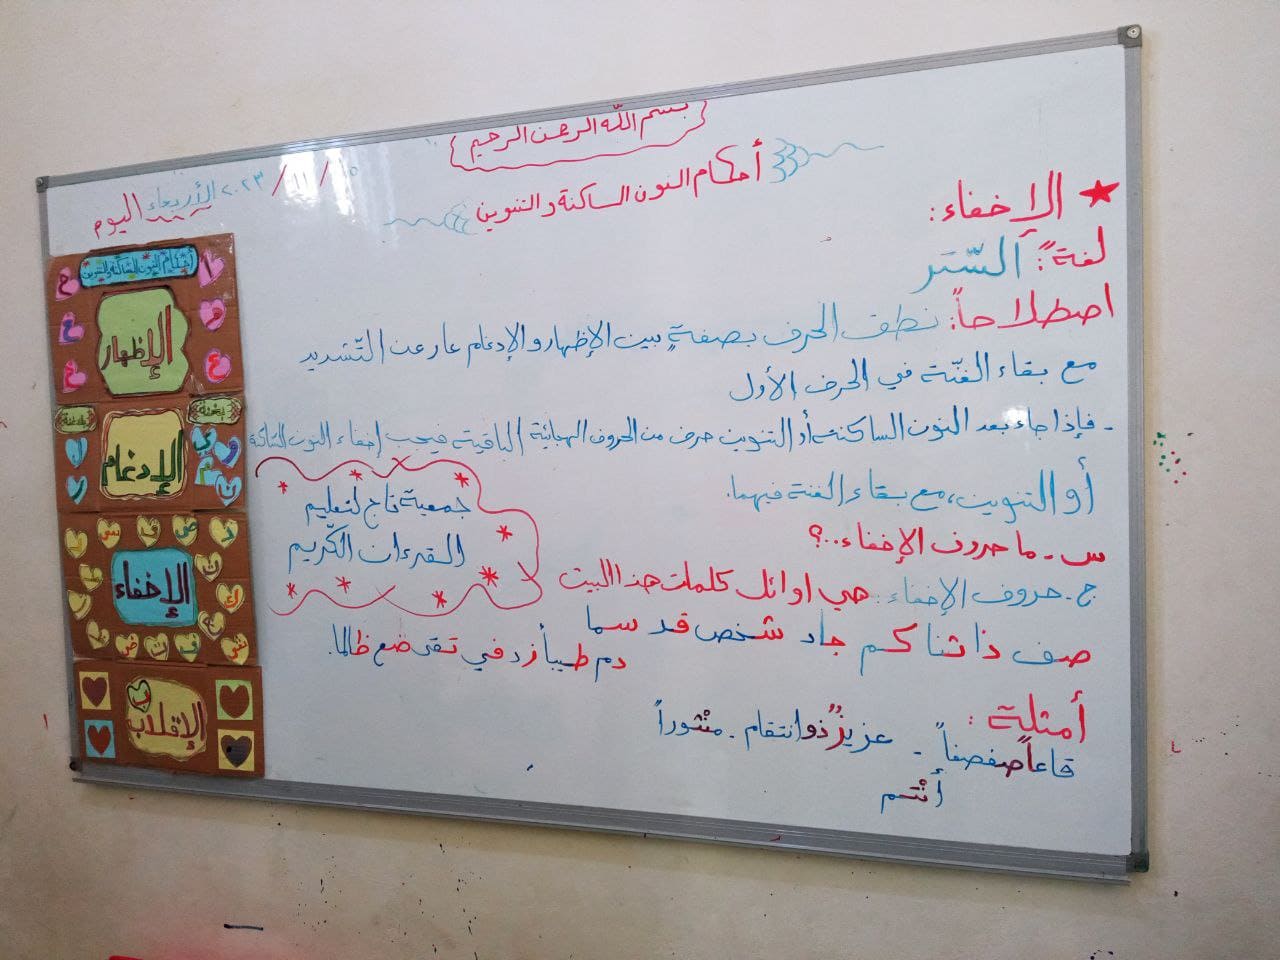 بسم الله الرحمن الرحيم
أحكام النون الساكنة والتنوين
اليوم الأربعاء ١٥ / ١١ / ٢٠٢٣
الإخفاء:
لغةً: السّتر
اصطلاحاً: نطق الحرف بصفةٍ بين الإظهار والإدغام عار عن التّشديد
مع بقاء الغنّة في الحرف الأول
- فإذا جاء بعد النون الساكنة أو التنوين حرف من الحروف الهجائية الباقية فيجب إخفاء النون الساكنة
أو التنوين، مع بقاء الغنة فيهما.
س - ما حروف الإخفاء..؟
ج - حروف الإخفاء: هي اوائل كلمات هذا البيت
صف ذا ثنا كم جاد شخص قد سما
دم طيباً زد في تقى ضع ظالما.
أمثلة:
قاعاً صفصفاً - عزيزٌ ذو انتقام - منْثوراً
أنْتم
جمعية تاج لتعليم
القرءان الكريم
أحكام النون الساكنة والتنوين
الإظهار
ء
ه
ع
ح
غ
بغنة
بلا غنة
الإدغام
ي
و
م
ن
ل
ر
الإخفاء
الإقلاب
ب